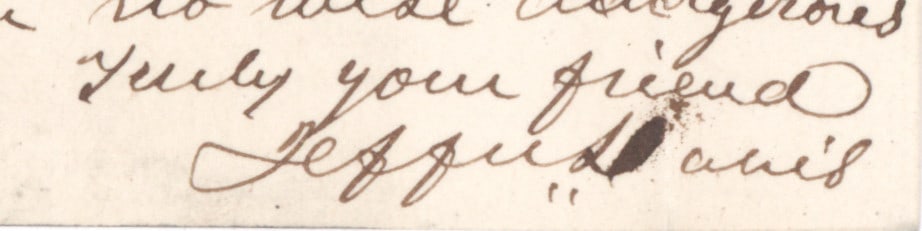 no wise dangerous
Truly your friend
Jeffn Davis